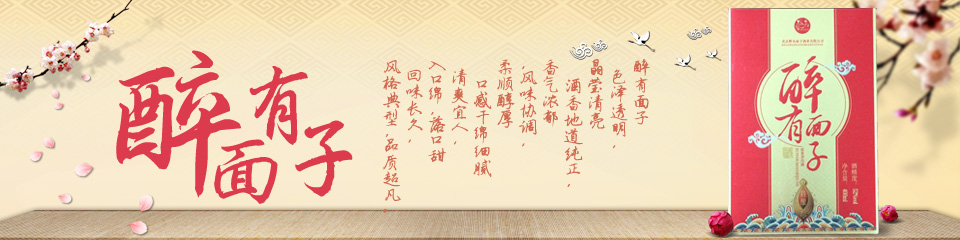 醉有面子
醉有面子
色泽透明，
晶莹清亮
酒香地道纯正，
香气浓郁
，风味协调，
柔顺醇厚
口感干绵细腻
清爽宜人，
入口绵，落口甜
回味长久，
风格典型，品质超凡.
醉有面子